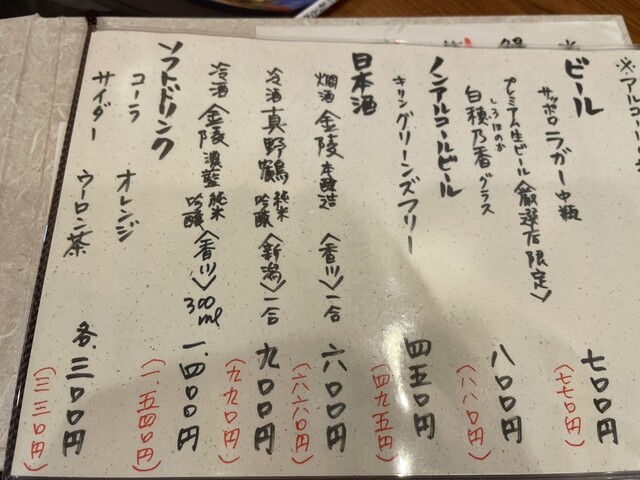 ※アルコール
ビール
サッポロラガー中瓶 七〇〇円
(七七〇円)
プレミアム生ビール〈厳選店限定〉
しろほのか
白穂乃香グラス 八〇〇円
(八八〇円)
ノンアルコールビール
キリングリーンズフリー 四五〇円
(四九五円)
日本酒
燗酒 金陵 本醸造〈香川〉一合 六〇〇円
(六六〇円)
冷酒 真野鶴 純米吟醸〈新潟〉一合 九〇〇円
(九九〇円)
冷酒 金陵 濃藍 純米吟醸〈香川〉300ml 一、四〇〇円
(一、五四〇円)
ソフトドリンク
コーラ オレンジ
サイダー ウーロン茶 各、三〇〇円
(三三〇円)